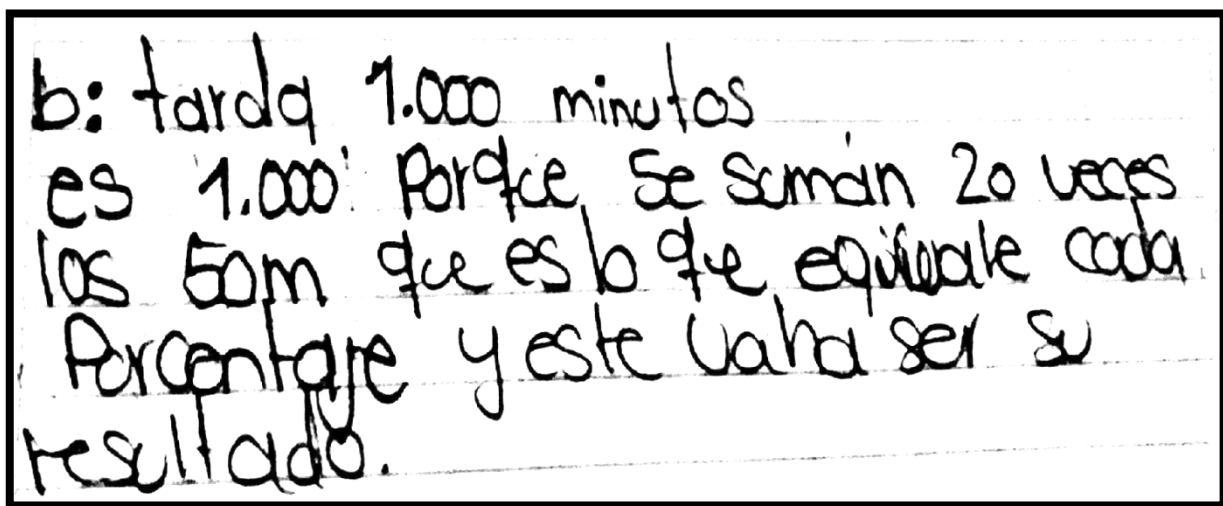 b: tarda 1.000 minutos
es 1.000: Porque se suman 20 veces
los 50m que es lo que equivale cada
Porcentaje y este vaha ser su
resultado.